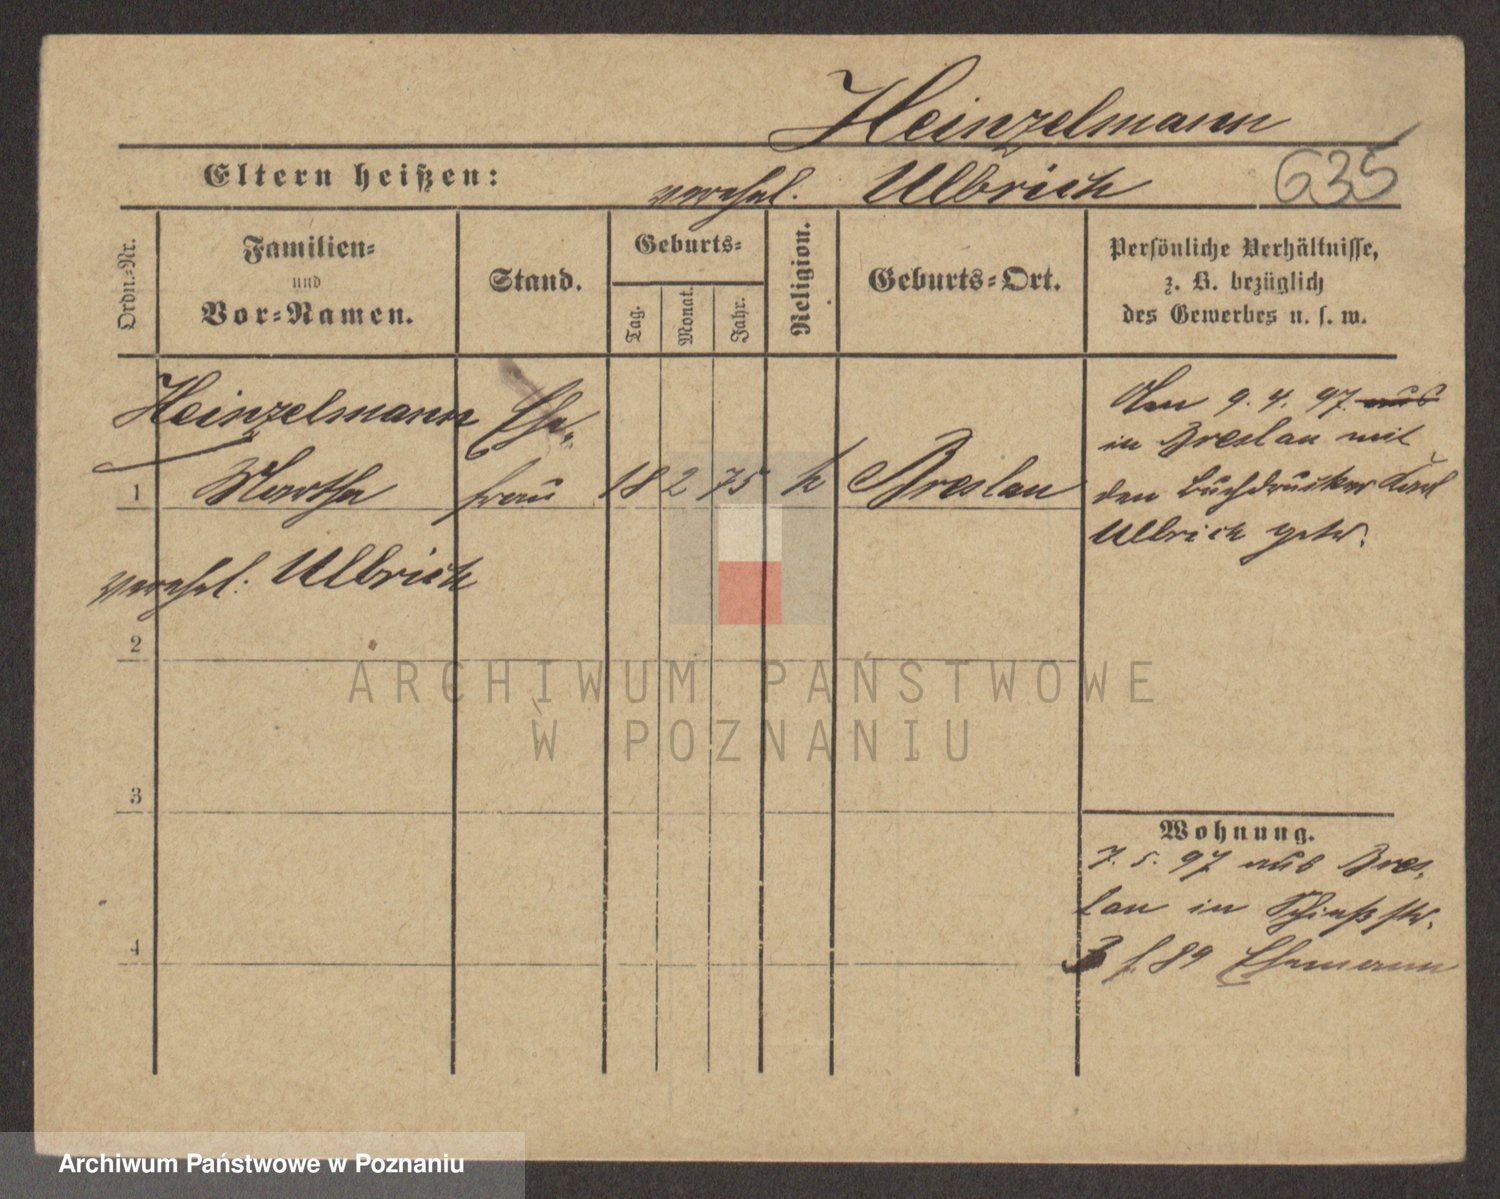 Heinzelmann
Eltern heißen:
verehel. Ulbrich
635
Ordn.-Nr.
Familien-
und
Vor-Namen.
Stand.
Geburts-
Tag.
Monat.
Jahr.
Religion.
Geburts-Ort.
Persönliche Verhältnisse,
z. B. bezüglich
des Gewerbes u. s. w.
Heinzelmann Ehe-
1 Martha frau 18 2 75 k Breslau
verehel. Ulbrich
Am 9. 4. 97 aus
in Breslau mit
den Buchdrucker Karl
Ulbrich getr.
2
3
4
Wohnung.
7. 5. 97 aus Bres-
lau in Schießstr.
3 f. 89 Ehemann
ARCHIWUM PAŃSTWOWE
W POZNANIU
Archiwum Państwowe w Poznaniu